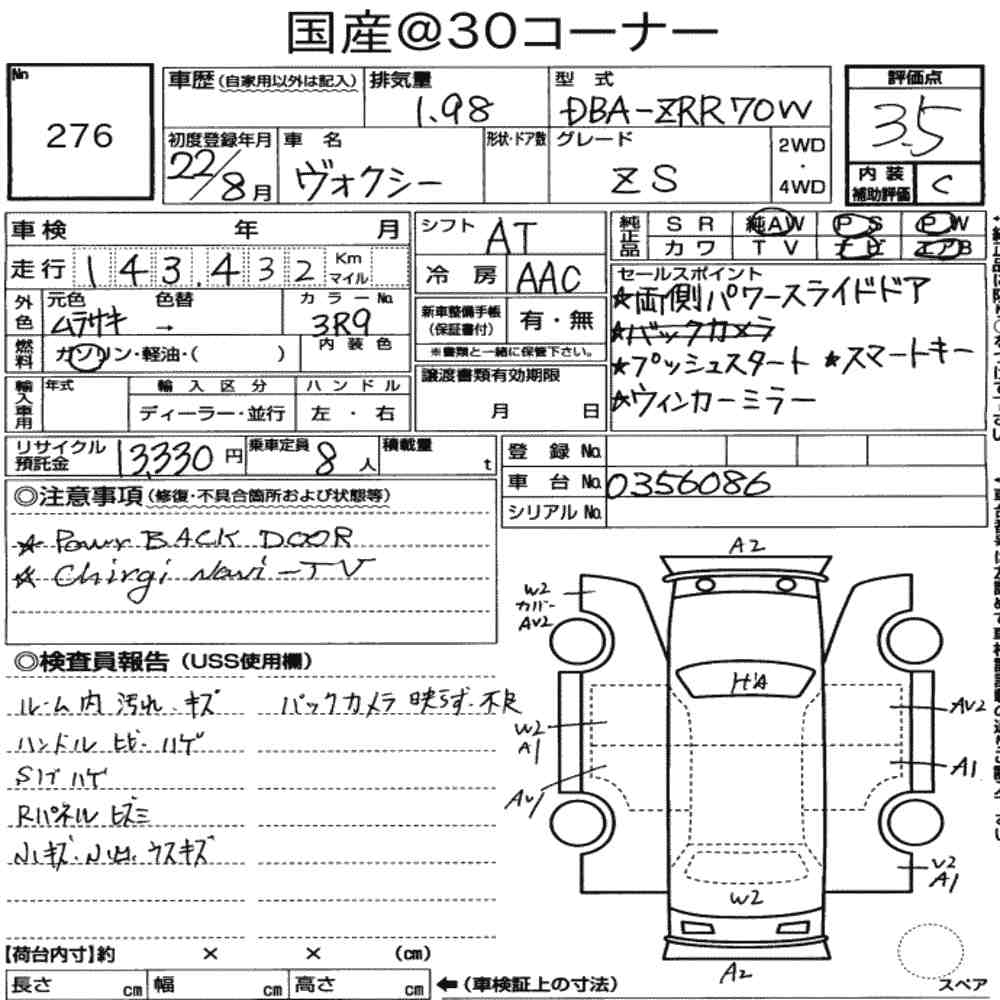 国産@30コーナー
No
276
車歴(自家用以外は記入)
排気量
1.98
型 式
DBA-ZRR70W
評価点
3.5
初度登録年月
22/8月
車 名
ヴォクシー
形状・ドア数
グレード
ZS
2WD
・
4WD
内装
補助評価
C
車検 年 月
シフト
AT
純正品
SR 純AW PS PW
カワ TV ナビ エアB
走行
143,432
Km
マイル
冷房
AAC
セールスポイント
★両側パワースライドドア
★バックカメラ
★プッシュスタート ★スマートキー
★ウィンカーミラー
外色
元色 色替
ムラサキ →
カラーNo.
3R9
新車整備手帳
(保証書付)
有・無
※書類と一緒に保管下さい。
燃料
ガソリン・軽油・( )
内装色
譲渡書類有効期限
月 日
輸入車用
年式
輸入区分
ディーラー・並行
ハンドル
左・右
リサイクル
預託金
13,330円
乗車定員
8人
積載量
t
登録No.
車台No.
0356086
シリアルNo.
◎注意事項(修復・不具合箇所および状態等)
★ Power BACK DOOR
★ Chirgi Navi-TV
◎検査員報告(USS使用欄)
ルーム内 汚れ.キズ
バックカメラ 映らず.不良
ハンドル ヒビ.ハゲ
Sリブ ハゲ
Rパネル ヒズミ
A2
W2
カバー
AV2
H'A
W2
A1
AV2
AV1
A1
V2
A1
W2
A2
スペア
【荷台内寸】約 × × (cm)
長さ cm 幅 cm 高さ cm
←(車検証上の寸法)